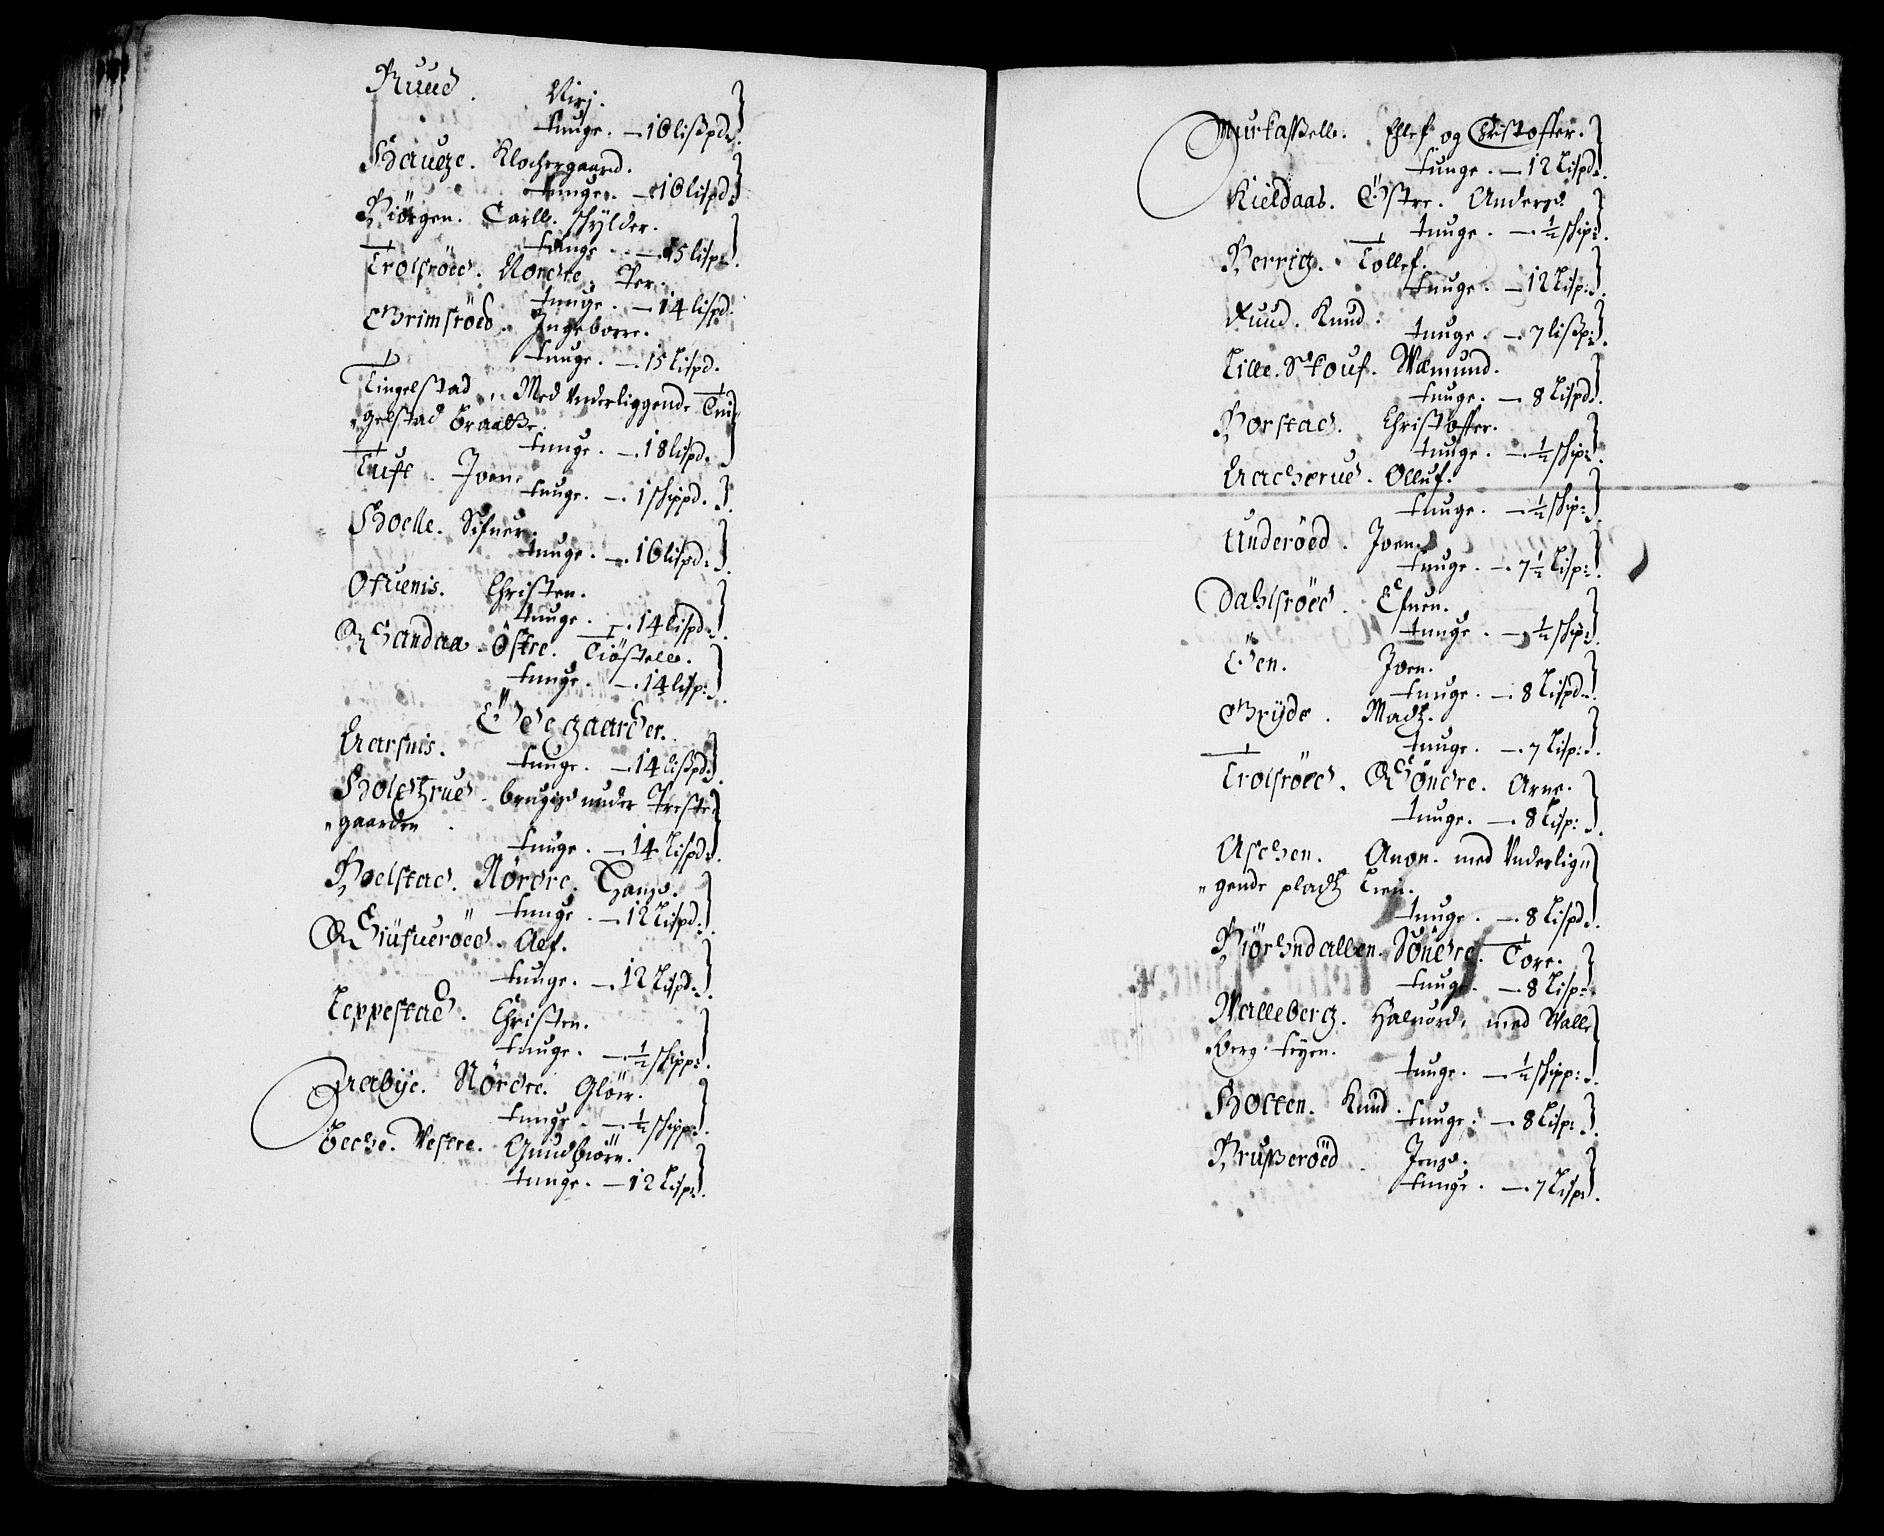 Ruud. Virj.
tunge. — 16 lißpd.
Hauge. Klochergaard.
tunge. — 16 lispd.
Biörgen. Carll. schylder.
tunge. — 15 lisp:
Trolsröed. Nordre. Per.
tunge. — 14 lispd.
Grimsröed. Ingeborre.
tunge. — 15 Lispd.
Tingelstad, Med Underliggende Tin„
„gelstad Braatte.
tunge. — 18 lispd.
Tuft. Joen.
tunge. — 1 schippd.
Hoelle. Sifuer.
tunge. — 16 lispd:
Ofuenis. Christen.
tunge. — 14 lispd:
Sandaa. Östre. Tiöstell.
tunge. — 14 lisp:
Ödegaarder.
Aarsnis.
tunge. — 14 lißpd.
Holtzrud. brugis under Preste
„gaarden.
tunge. — 14 Lispd:
Boelstad. Nördre. Hans.
tunge. — 12 Lispd:
Siüfueröed. Alf.
tunge. — 12 Lispd:
Leppestad. Christen.
tunge. — ½ schipp:
Aabye. Nördre. Glöer.
tunge. — ½ schipp:
Beche. Vestre. Gundbiörn.
tunge. — 12 Lisp:
Murkasselle. Ellef og Christoffer.
tunge. — 12 Lispd:
Kieldaas. Östre. Anders.
tunge. — ½ schip:
Berrig. Tollef.
tunge. — 12 Lisp:
Ruud. Knud.
tunge. — 7 lißp:
Lille. Skouf. Wemund.
tunge. — 8 Lispd:
Borstad. Christoffer.
tunge. — ½ schip:
Aacherud. Olluf.
tunge. — ½ schip:
Underöed. Joen.
tunge. — 7½ Lisp:
Dahlsröed. Efuen.
tunge. — ½ schip:
Öen. Joen.
tunge. — 8 Lispd:
Gryde. Madtz.
tunge. — 7 Lisp:
Trolsröed. Söndre. Arne.
tunge. — 8 Lisp:
Aschen. Anon. med Underlig„
„gende pladtz Lien.
tunge. — 8 Lispd:
Biörhndallen. Söndre. Tore.
tunge. — 8 Lisp:
Walleberg. Halvord, med Walle
„berg: Eyen.
tunge. — ½ schipp:
Holten. Knud.
tunge. — 8 Lisp:
Brusseröed. Jens.
tunge. — 7 Lisp: